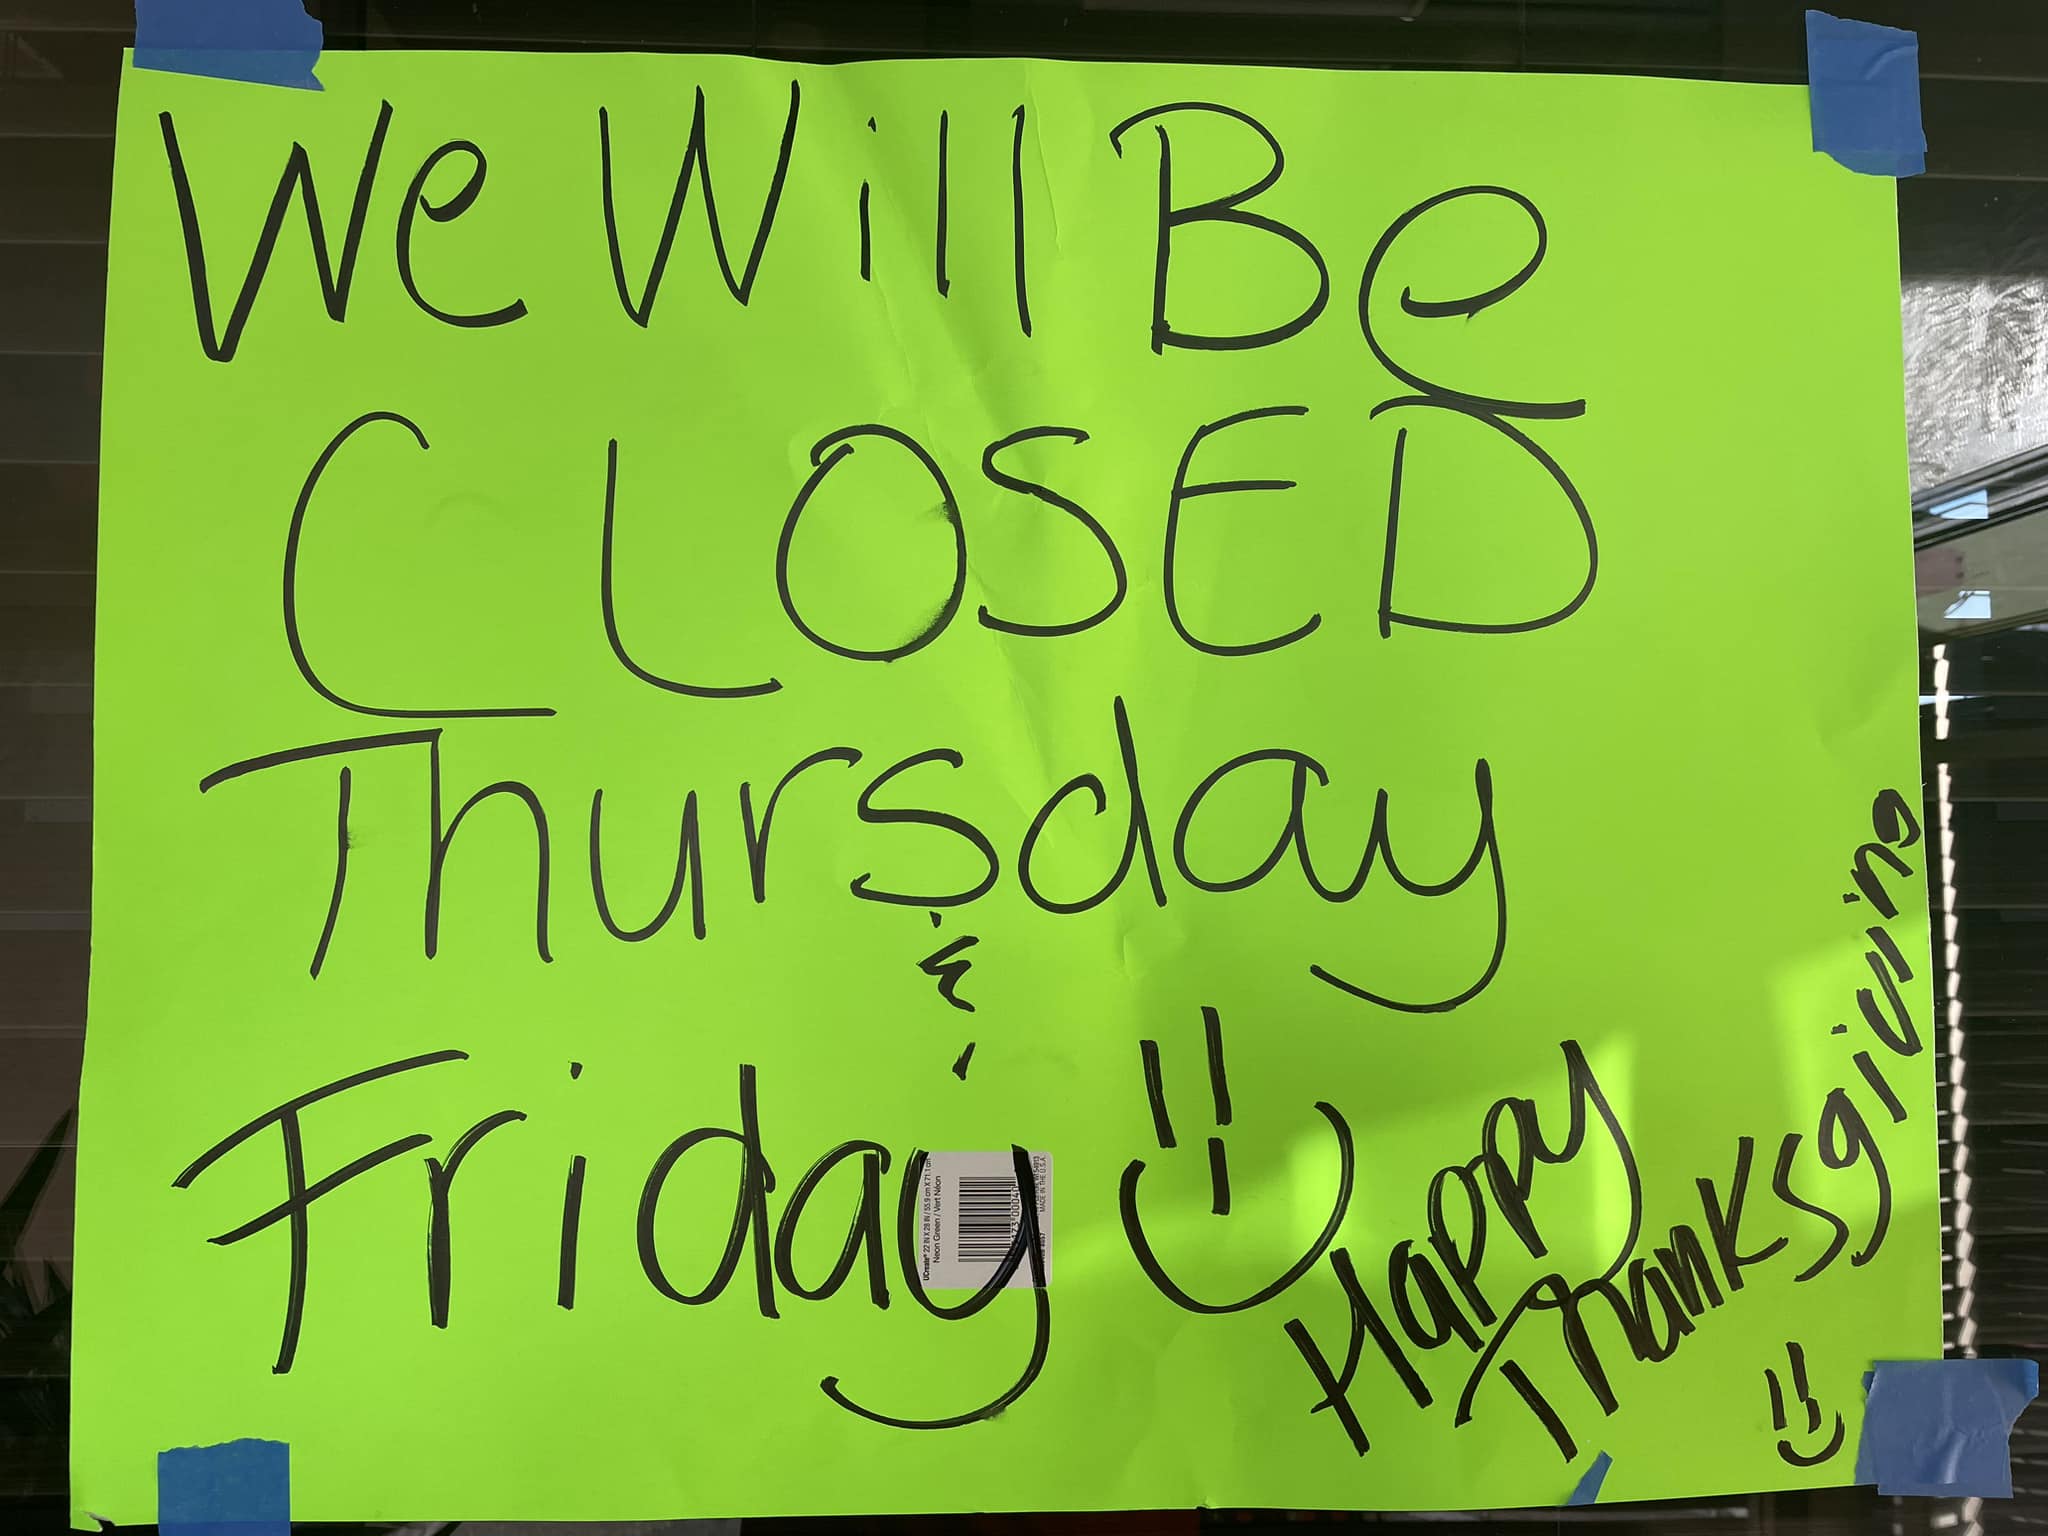 We Will Be
CLOSED
Thursday
&
Friday
Happy
Thanksgiving
UCreate® 22 IN X 28 IN / 55.9 cm X 71.1 cm
Neon Green / Vert Néon
MADE IN THE U.S.A.